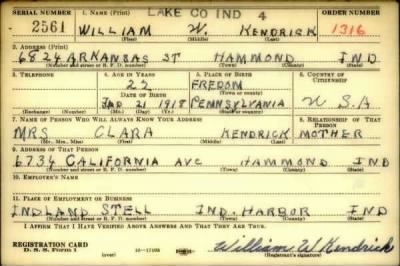 SERIAL NUMBER 1. NAME (Print) LAKE CO IND 4 ORDER NUMBER
2561 WILLIAM W. KENDRICK 1316
(First) (Middle) (Last)
2. ADDRESS (Print)
6824 ARKANSAS ST HAMMOND IND
(Number and street or R. F. D. number) (Town) (County) (State)
3. TELEPHONE 4. AGE IN YEARS 5. PLACE OF BIRTH 6. COUNTRY OF CITIZENSHIP
22 FREDOM
DATE OF BIRTH (Town or county)
21 1918 PENNSYLVANIA U S.A
(Exchange) (Number) (Mo.) (Day) (Yr.) (State or country)
7. NAME OF PERSON WHO WILL ALWAYS KNOW YOUR ADDRESS 8. RELATIONSHIP OF THAT PERSON
MRS CLARA KENDRICK MOTHER
(Mr., Mrs., Miss) (First) (Middle) (Last)
9. ADDRESS OF THAT PERSON
6734 CALIFORNIA AVE HAMMOND IND
(Number and street or R. F. D. number) (Town) (County) (State)
10. EMPLOYER'S NAME
11. PLACE OF EMPLOYMENT OR BUSINESS
INDLAND STELL IND. HARBOR IND
(Number and street or R. F. D. number) (Town) (County) (State)
I AFFIRM THAT I HAVE VERIFIED ABOVE ANSWERS AND THAT THEY ARE TRUE.
REGISTRATION CARD
D. S. S. Form 1 (over) William W Kendrick
(Registrant's signature)